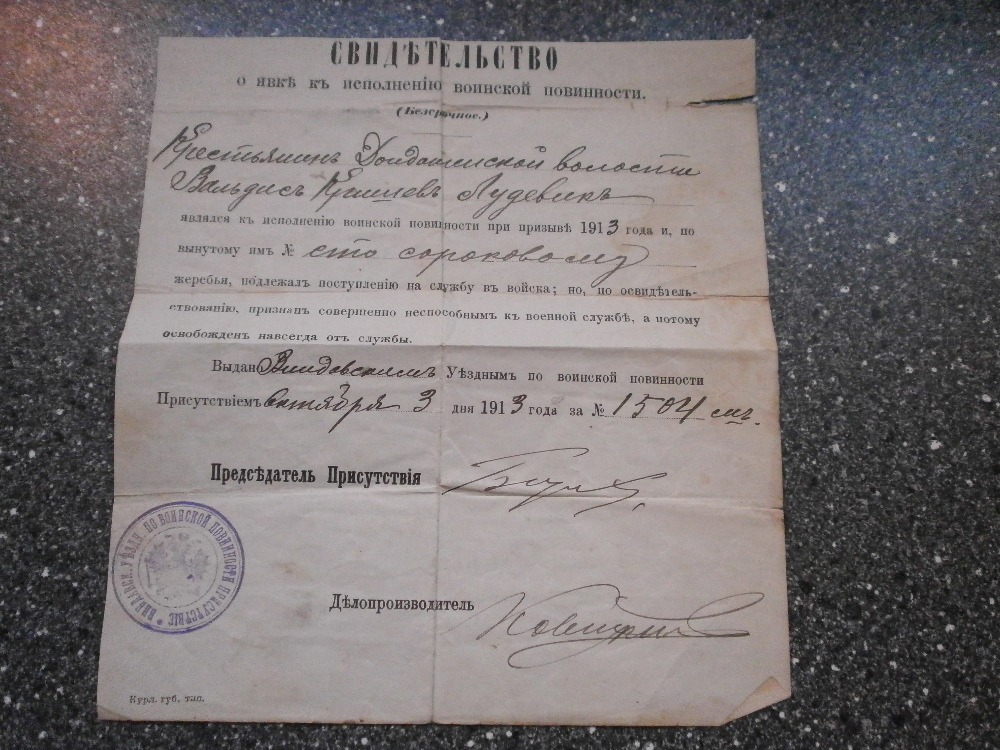 СВИДѢТЕЛЬСТВО
о явкѣ къ исполненію воинской повинности.
(Безсрочное.)
Крестьянинъ Донданенской волости
Вальдисъ Кришевъ Лудевикъ
являлся къ исполненію воинской повинности при призывѣ 1913 года и, по
вынутому имъ № сто сороковому
жеребья, подлежалъ поступленію на службу въ войска; но, по освидѣтель-
ствованію, признанъ совершенно неспособнымъ къ военной службѣ, а потому
освобожденъ навсегда отъ службы.
Выдано Виндавскимъ Уѣзднымъ по воинской повинности
Присутствіемъ октября 3 дня 1913 года за № 1504
Предсѣдатель Присутствія
ВИНДАВСК. УѢЗДН. ПО ВОИНСКОЙ ПОВИННОСТИ ПРИСУТСТВІЕ
Дѣлопроизводитель
Курл. губ. тип.